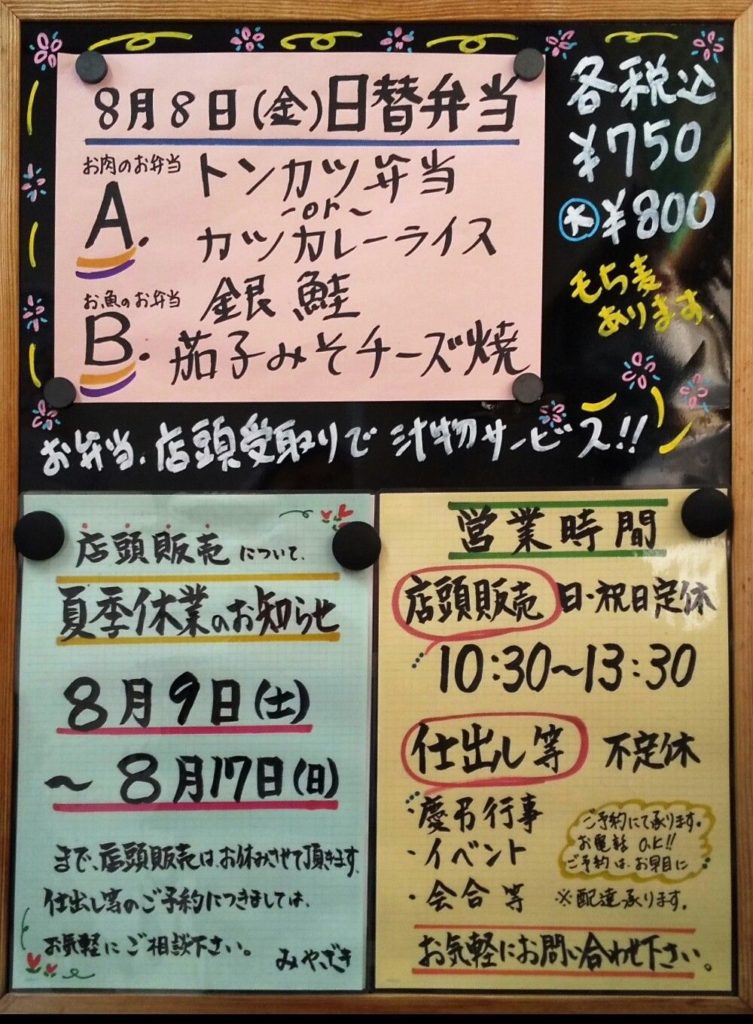 8月8日(金)日替弁当
お肉のお弁当
A.
トンカツ弁当
or
カツカレーライス
お魚のお弁当
B.
銀鮭
茄子みそチーズ焼
各税込
¥750
大 ¥800
もち麦
あります。
お弁当、店頭受取りで汁物サービス!!
店頭販売について、
夏季休業のお知らせ
8月9日(土)
～8月17日(日)
まで、店頭販売は、お休みさせて頂きます。
仕出し等のご予約につきましては、
お気軽にご相談下さい。
みやざき
営業時間
店頭販売 日・祝日定休
10:30～13:30
仕出し等 不定休
・慶弔行事
・イベント
・会合等
ご予約にて承ります。
お電話OK!!
ご予約は、お早目に
※配達承ります。
お気軽にお問い合わせ下さい。